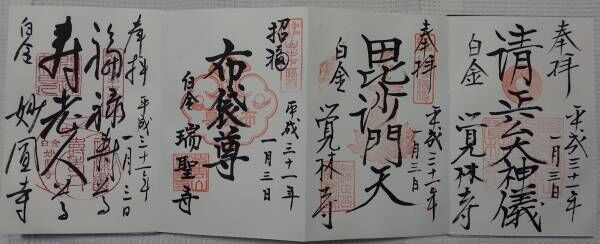 奉拝
平成三十一年
一月三日
清正公大神儀
白金 覚林寺
奉拝
平成三十一年
一月三日
毘沙門天
白金 覚林寺
招福
平成三十一年
一月三日
布袋尊
白金 瑞聖寺
奉拝
平成三十一年
一月三日
福禄寿尊
寿老人尊
白金 妙圓寺